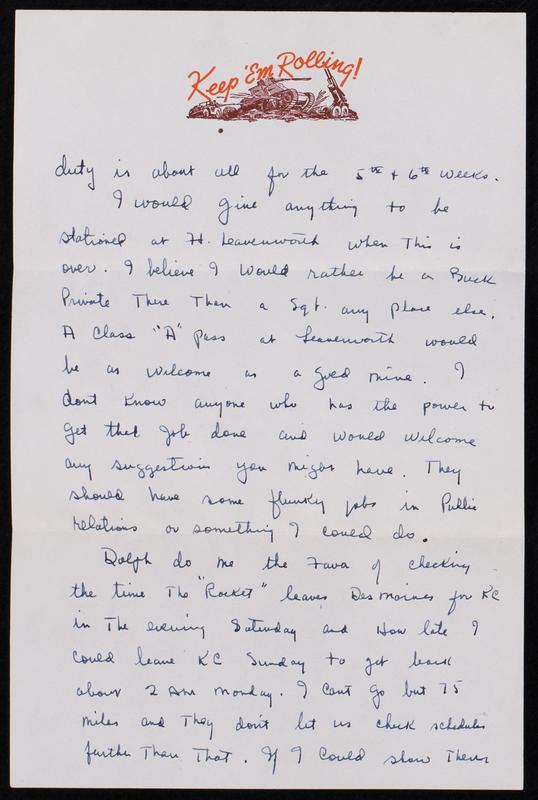 Keep 'Em Rolling!
duty is about all for the 5th + 6th weeks.
I would give anything to be
stationed at Ft. Leavenworth when This is
over. I believe I would rather be a Buck
Private There Than a Sgt. any place else.
A Class "A" pass at Leavenworth would
be as welcome as a gold mine. I
dont know anyone who has the power to
get that job done and would welcome
any suggestions you might have. They
should have some flunky jobs in Public
relations or something I could do.
Dolph do me the favor of checking
the time The "Rocket" leaves Des Moines for KC
in The evening Saturday and How late I
could leave KC Sunday to get back
about 2 AM Monday. I Cant Go but 75
miles and They don't let us check schedules
further Than That. If I Could show Them